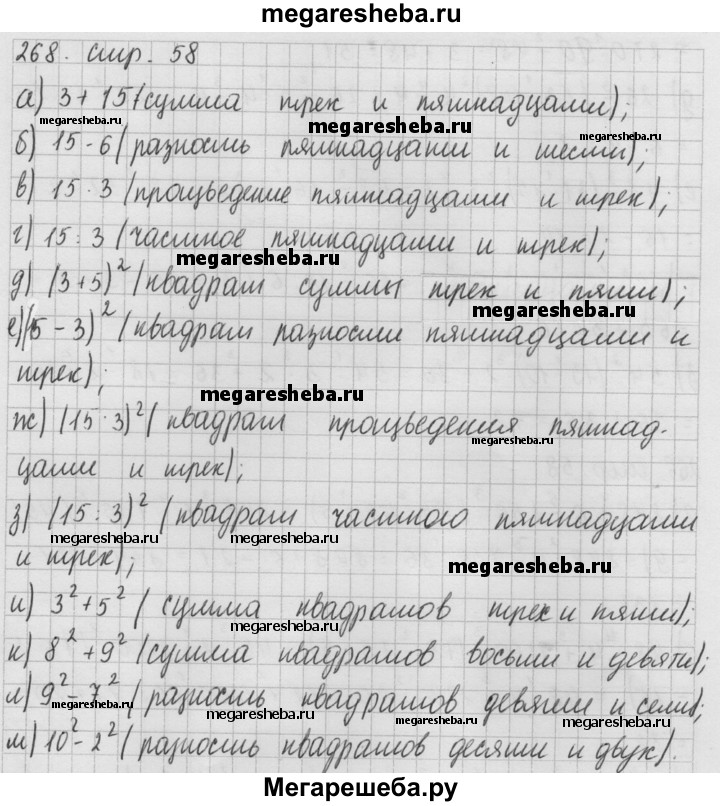 megaresheba.ru
268. стр. 58
а) 3 + 15 (сумма трех и пятнадцати);
megaresheba.ru
megaresheba.ru
megaresheba.ru
б) 15 - 6 (разность пятнадцати и шести);
в) 15 · 3 (произведение пятнадцати и трех);
г) 15 : 3 (частное пятнадцати и трех);
megaresheba.ru
д) (3 + 5)² (квадрат суммы трех и пяти);
megaresheba.ru
е) (15 - 3)² (квадрат разности пятнадцати и
трех);
megaresheba.ru
ж) (15 · 3)² (квадрат произведения пятнад-
megaresheba.ru
цати и трех);
з) (15 : 3)² (квадрат частного пятнадцати
megaresheba.ru megaresheba.ru
и трех);
megaresheba.ru
и) 3² + 5² (сумма квадратов трех и пяти);
megaresheba.ru
к) 8² + 9² (сумма квадратов восьми и девяти);
л) 9² - 7² (разность квадратов девяти и семи);
megaresheba.ru megaresheba.ru megaresheba.ru
м) 10² - 2² (разность квадратов десяти и двух).
Мегарешеба.ру